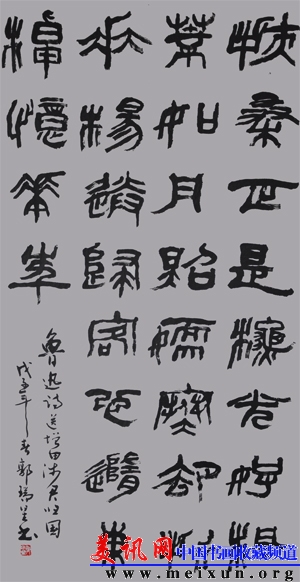 扶桑正是穐光好楓
葉如丹照嫩寒却折
垂楊送歸客心隨東
棹憶華年
魯迅詩送增田涉君归国
戊子年之春郭瑞书
美讯网 中国书画收藏频道
www.meixun.net